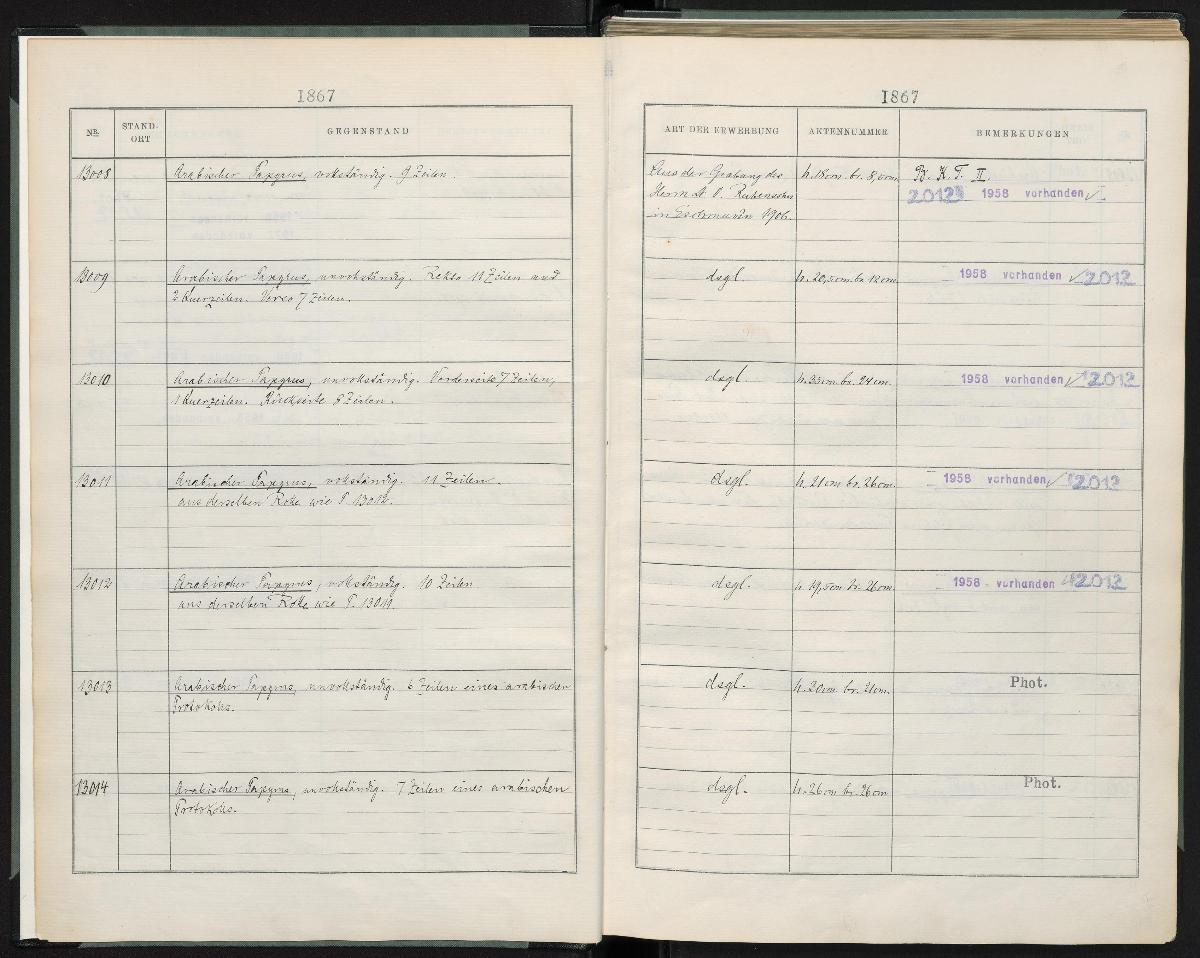 1867
NR. STAND-ORT GEGENSTAND
13008 Arabischer Papyrus, vollständig. 9 Zeilen.
13009 Arabischer Papyrus, unvollständig. Rekto 11 Zeilen und
2 Querzeilen. Verso 7 Zeilen.
13010 Arabischer Papyrus, unvollständig. Vorderseite 7 Zeilen,
1 Querzeilen. Rückseite 8 Zeilen.
13011 Arabischer Papyrus, vollständig. 11 Zeilen.
aus derselben Rolle wie P. 13012.
13012 Arabischer Papyrus, vollständig. 10 Zeilen
aus derselben Rolle wie P. 13011.
13013 Arabischer Papyrus, unvollständig. 6 Zeilen eines arabischen
Protokolls.
13014 Arabischer Papyrus, unvollständig. 7 Zeilen eines arabischen
Protokolls.
1867
ART DER ERWERBUNG AKTENNUMMER BEMERKUNGEN
Aus der Grabung des h. 18 cm. br. 8,0 cm. P. K. T. II.
Herrn Dr. O. Rubensohn 2012 1958 vorhanden
in Eschmunên 1906.
dsgl. h. 20,5 cm. br. 12 cm. 1958 vorhanden 2012
dsgl. h. 33 cm. br. 24 cm. 1958 vorhanden 2012
dsgl. h. 21 cm. br. 26 cm. 1958 vorhanden 2012
dsgl. h. 19,5 cm. br. 26 cm. 1958 vorhanden 2012
dsgl. h. 20 cm. br. 21 cm. Phot.
dsgl. h. 26 cm. br. 26 cm Phot.